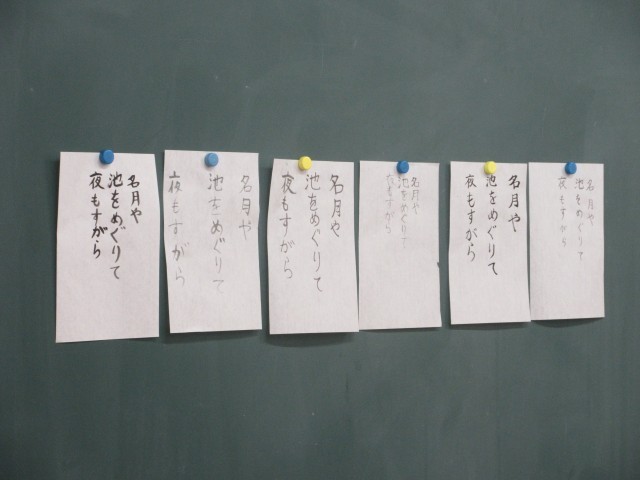 名月や
池をめぐりて
夜もすがら
名月や
池をめぐりて
夜もすがら
名月や
池をめぐりて
夜もすがら
名月や
池をめぐりて
夜もすがら
名月や
池をめぐりて
夜もすがら
名月や
池をめぐりて
夜もすがら